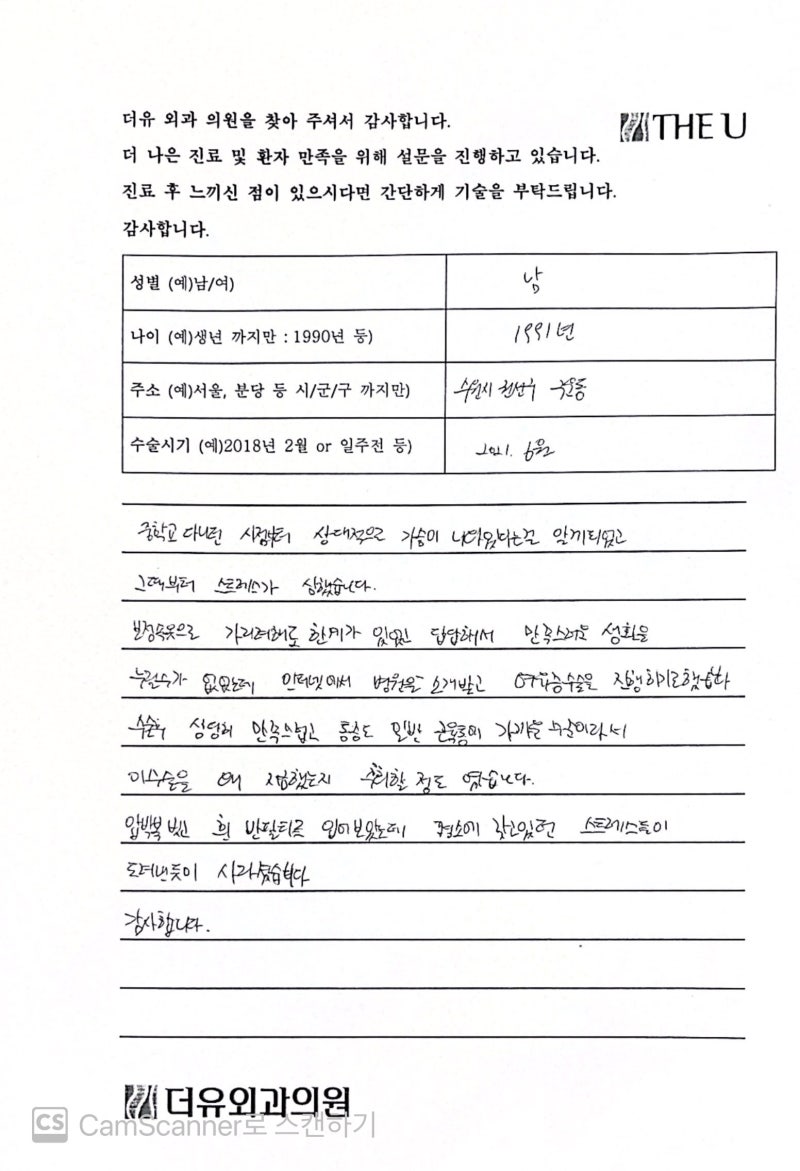 더유 외과 의원을 찾아 주셔서 감사합니다.
THE U
더 나은 진료 및 환자 만족을 위해 설문을 진행하고 있습니다.
진료 후 느끼신 점이 있으시다면 간단하게 기술을 부탁드립니다.
감사합니다.
성별 (예)남/여) 남
나이 (예)생년 까지만 : 1990년 등) 1991년
주소 (예)서울, 분당 등 시/군/구 까지만) 수원시 권선구
수술시기 (예)2018년 2월 or 일주전 등) 2021. 6월
중학교 다니던 시점부터 상대적으로 가슴이 나와있다는걸 알게되었고
그때부터 스트레스가 심했습니다.
보정속옷으로 가리려해도 한계가 있었고 답답해서 만족스러운 생활을
누릴수가 없었는데 인터넷에서 병원을 소개받고 여유증수술을 진행하기로했습니다
수술후 상당히 만족스럽고 통증도 일반 근육통에 가까운 수준이라서
이수술을 왜 지금했는지 후회할 정도 였습니다.
압박복 벗고 흰 반팔티를 입어보았는데 평소에 갖고있던 스트레스들이
도려낸듯이 사라졌습니다
감사합니다.
더유외과의원
CS CamScanner로 스캔하기